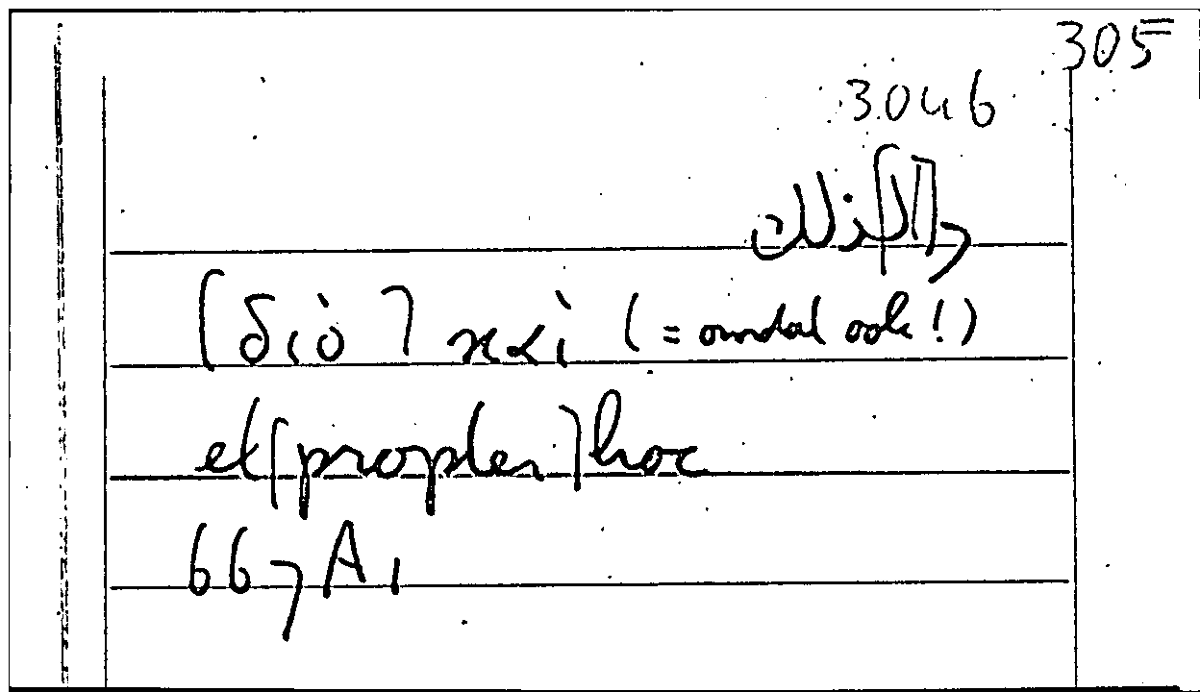 305
3046
و[ل]ذلك
[διὸ] καὶ (= omdat ook!)
et [propter] hoc
667 A 1